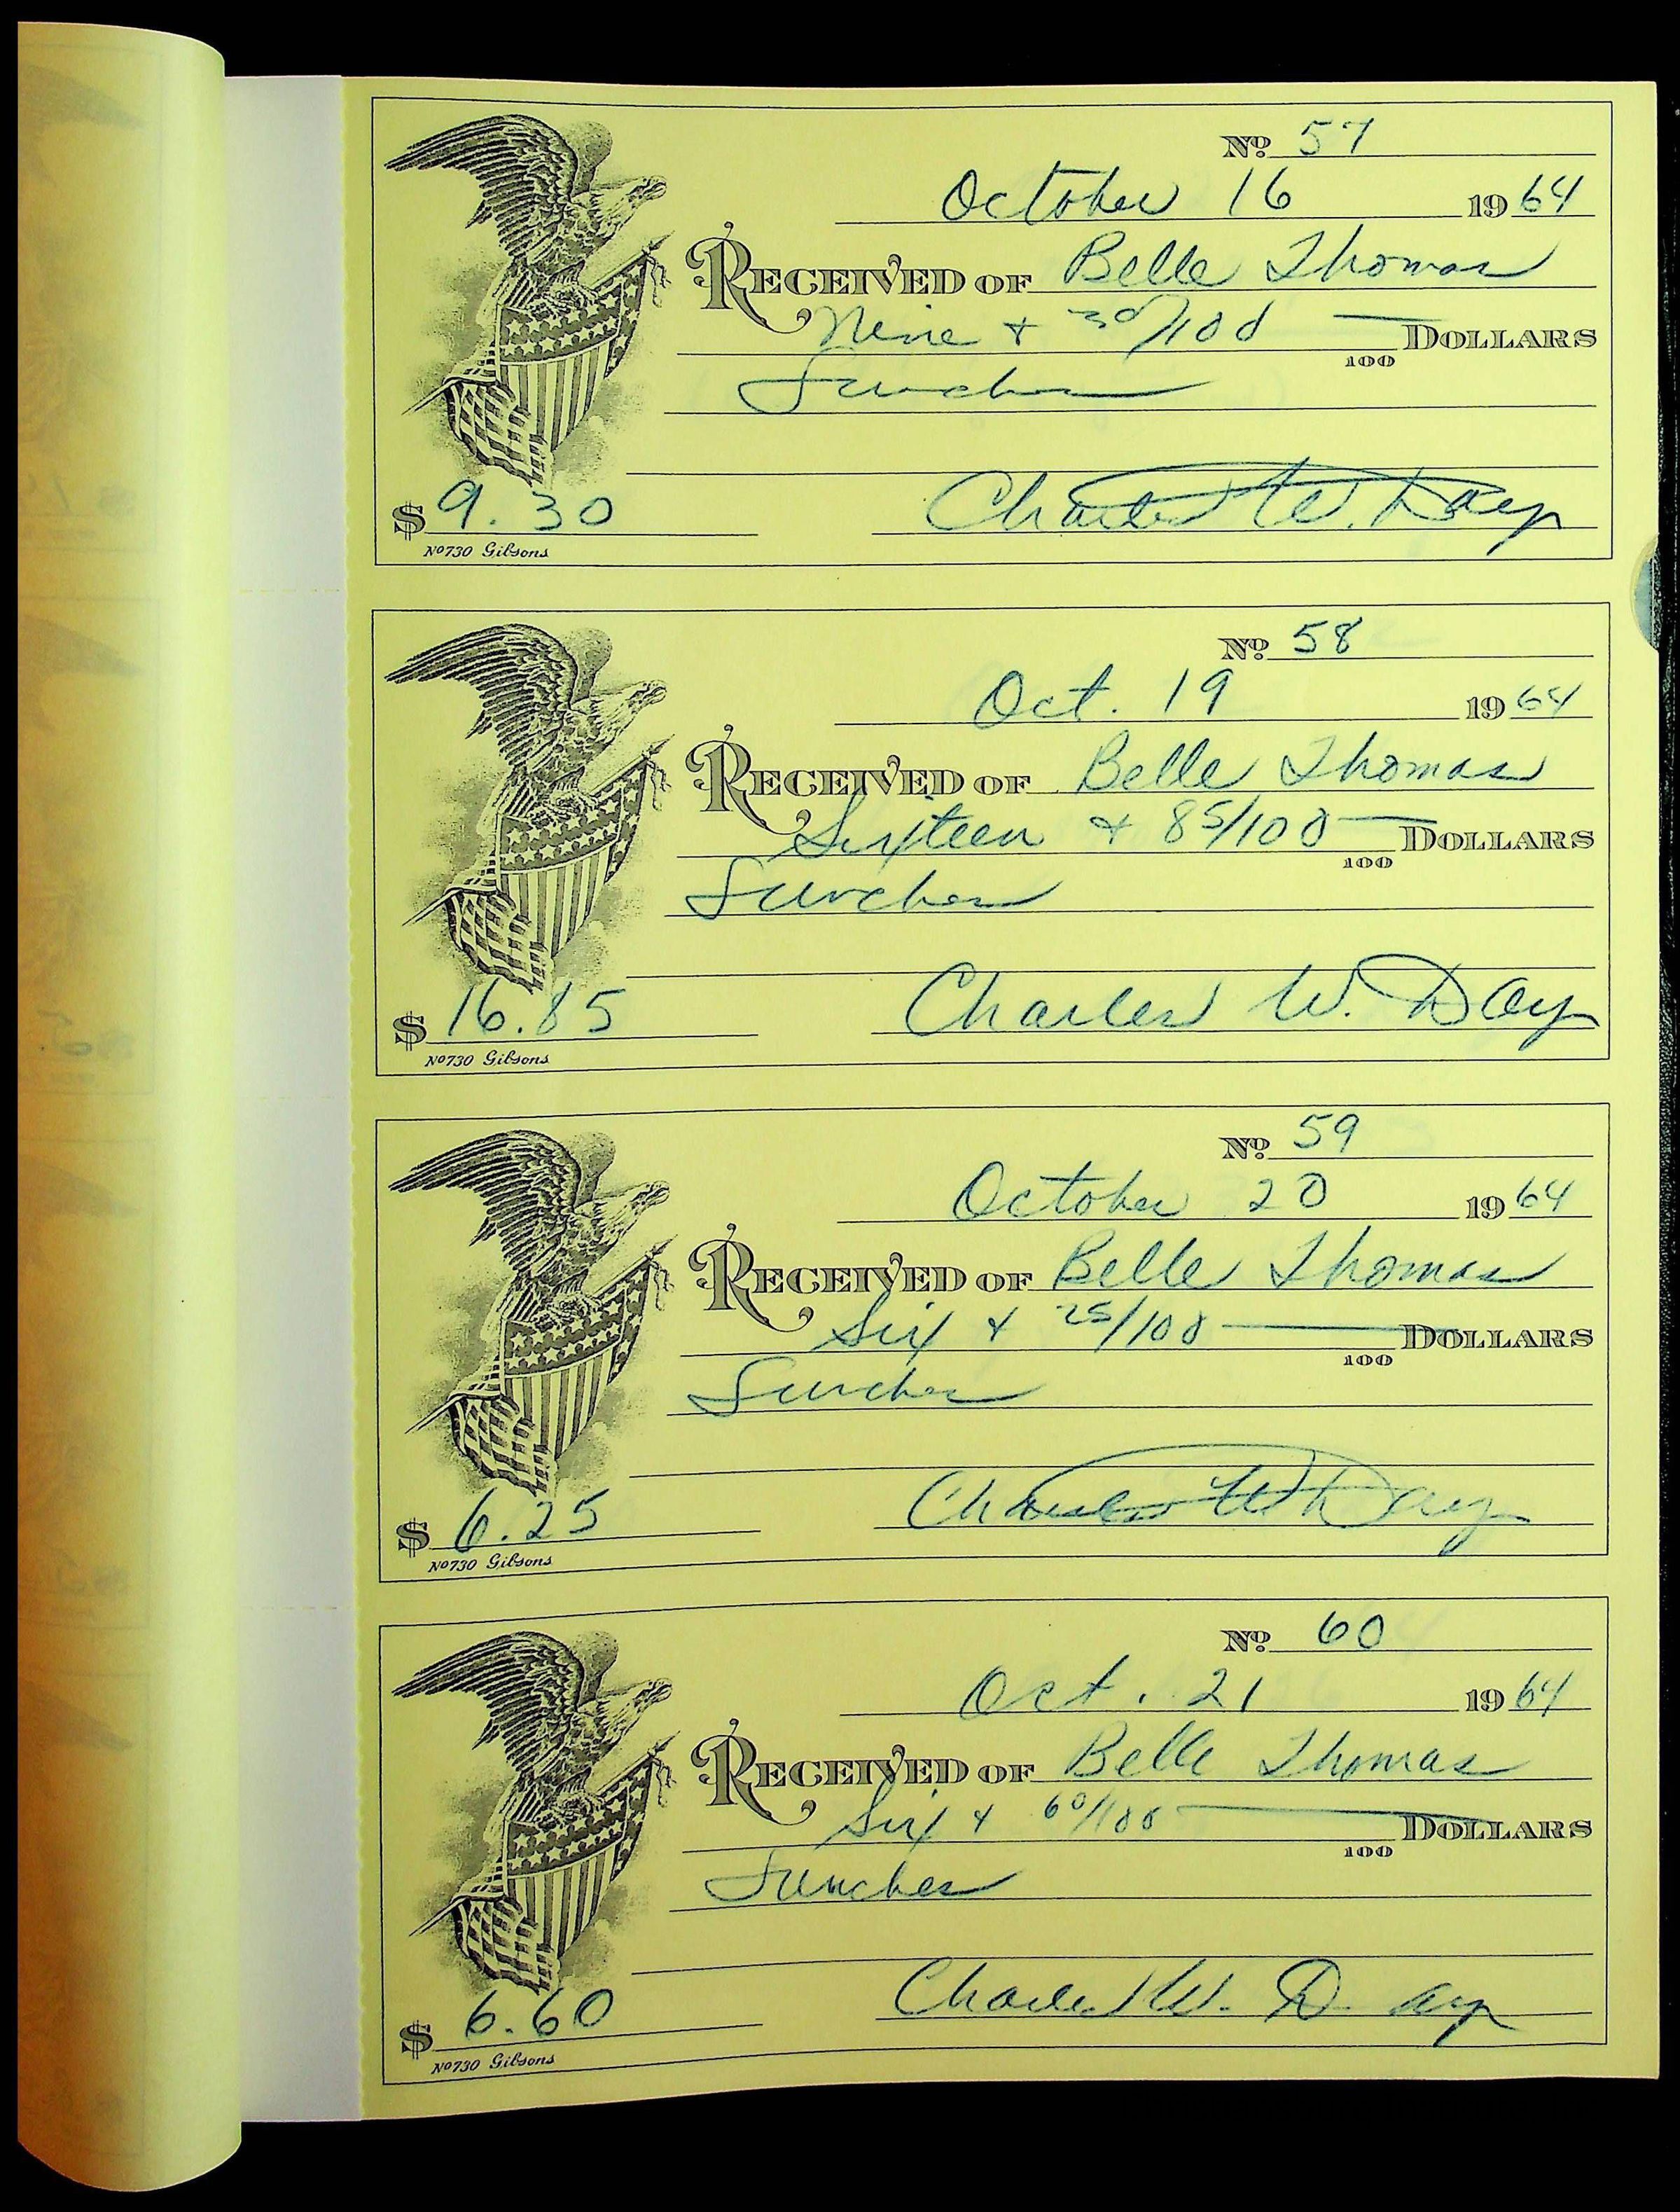 Nº 57
October 16 1964
RECEIVED OF Belle Thomas
Nine + 30/100 — DOLLARS
100
Lunches
$ 9.30 Charles W. Day
Nº730 Gibsons
Nº 58
Oct. 19 1964
RECEIVED OF Belle Thomas
Sixteen + 85/100 — DOLLARS
100
Lunches
$ 16.85 Charles W. Day
Nº730 Gibsons
Nº 59
October 20 1964
RECEIVED OF Belle Thomas
Six + 25/100 — DOLLARS
100
Lunches
$ 6.25 Charles W. Day
Nº730 Gibsons
Nº 60
Oct. 21 1964
RECEIVED OF Belle Thomas
Six + 60/100 — DOLLARS
100
Lunches
$ 6.60 Charles W. Day
Nº730 Gibsons